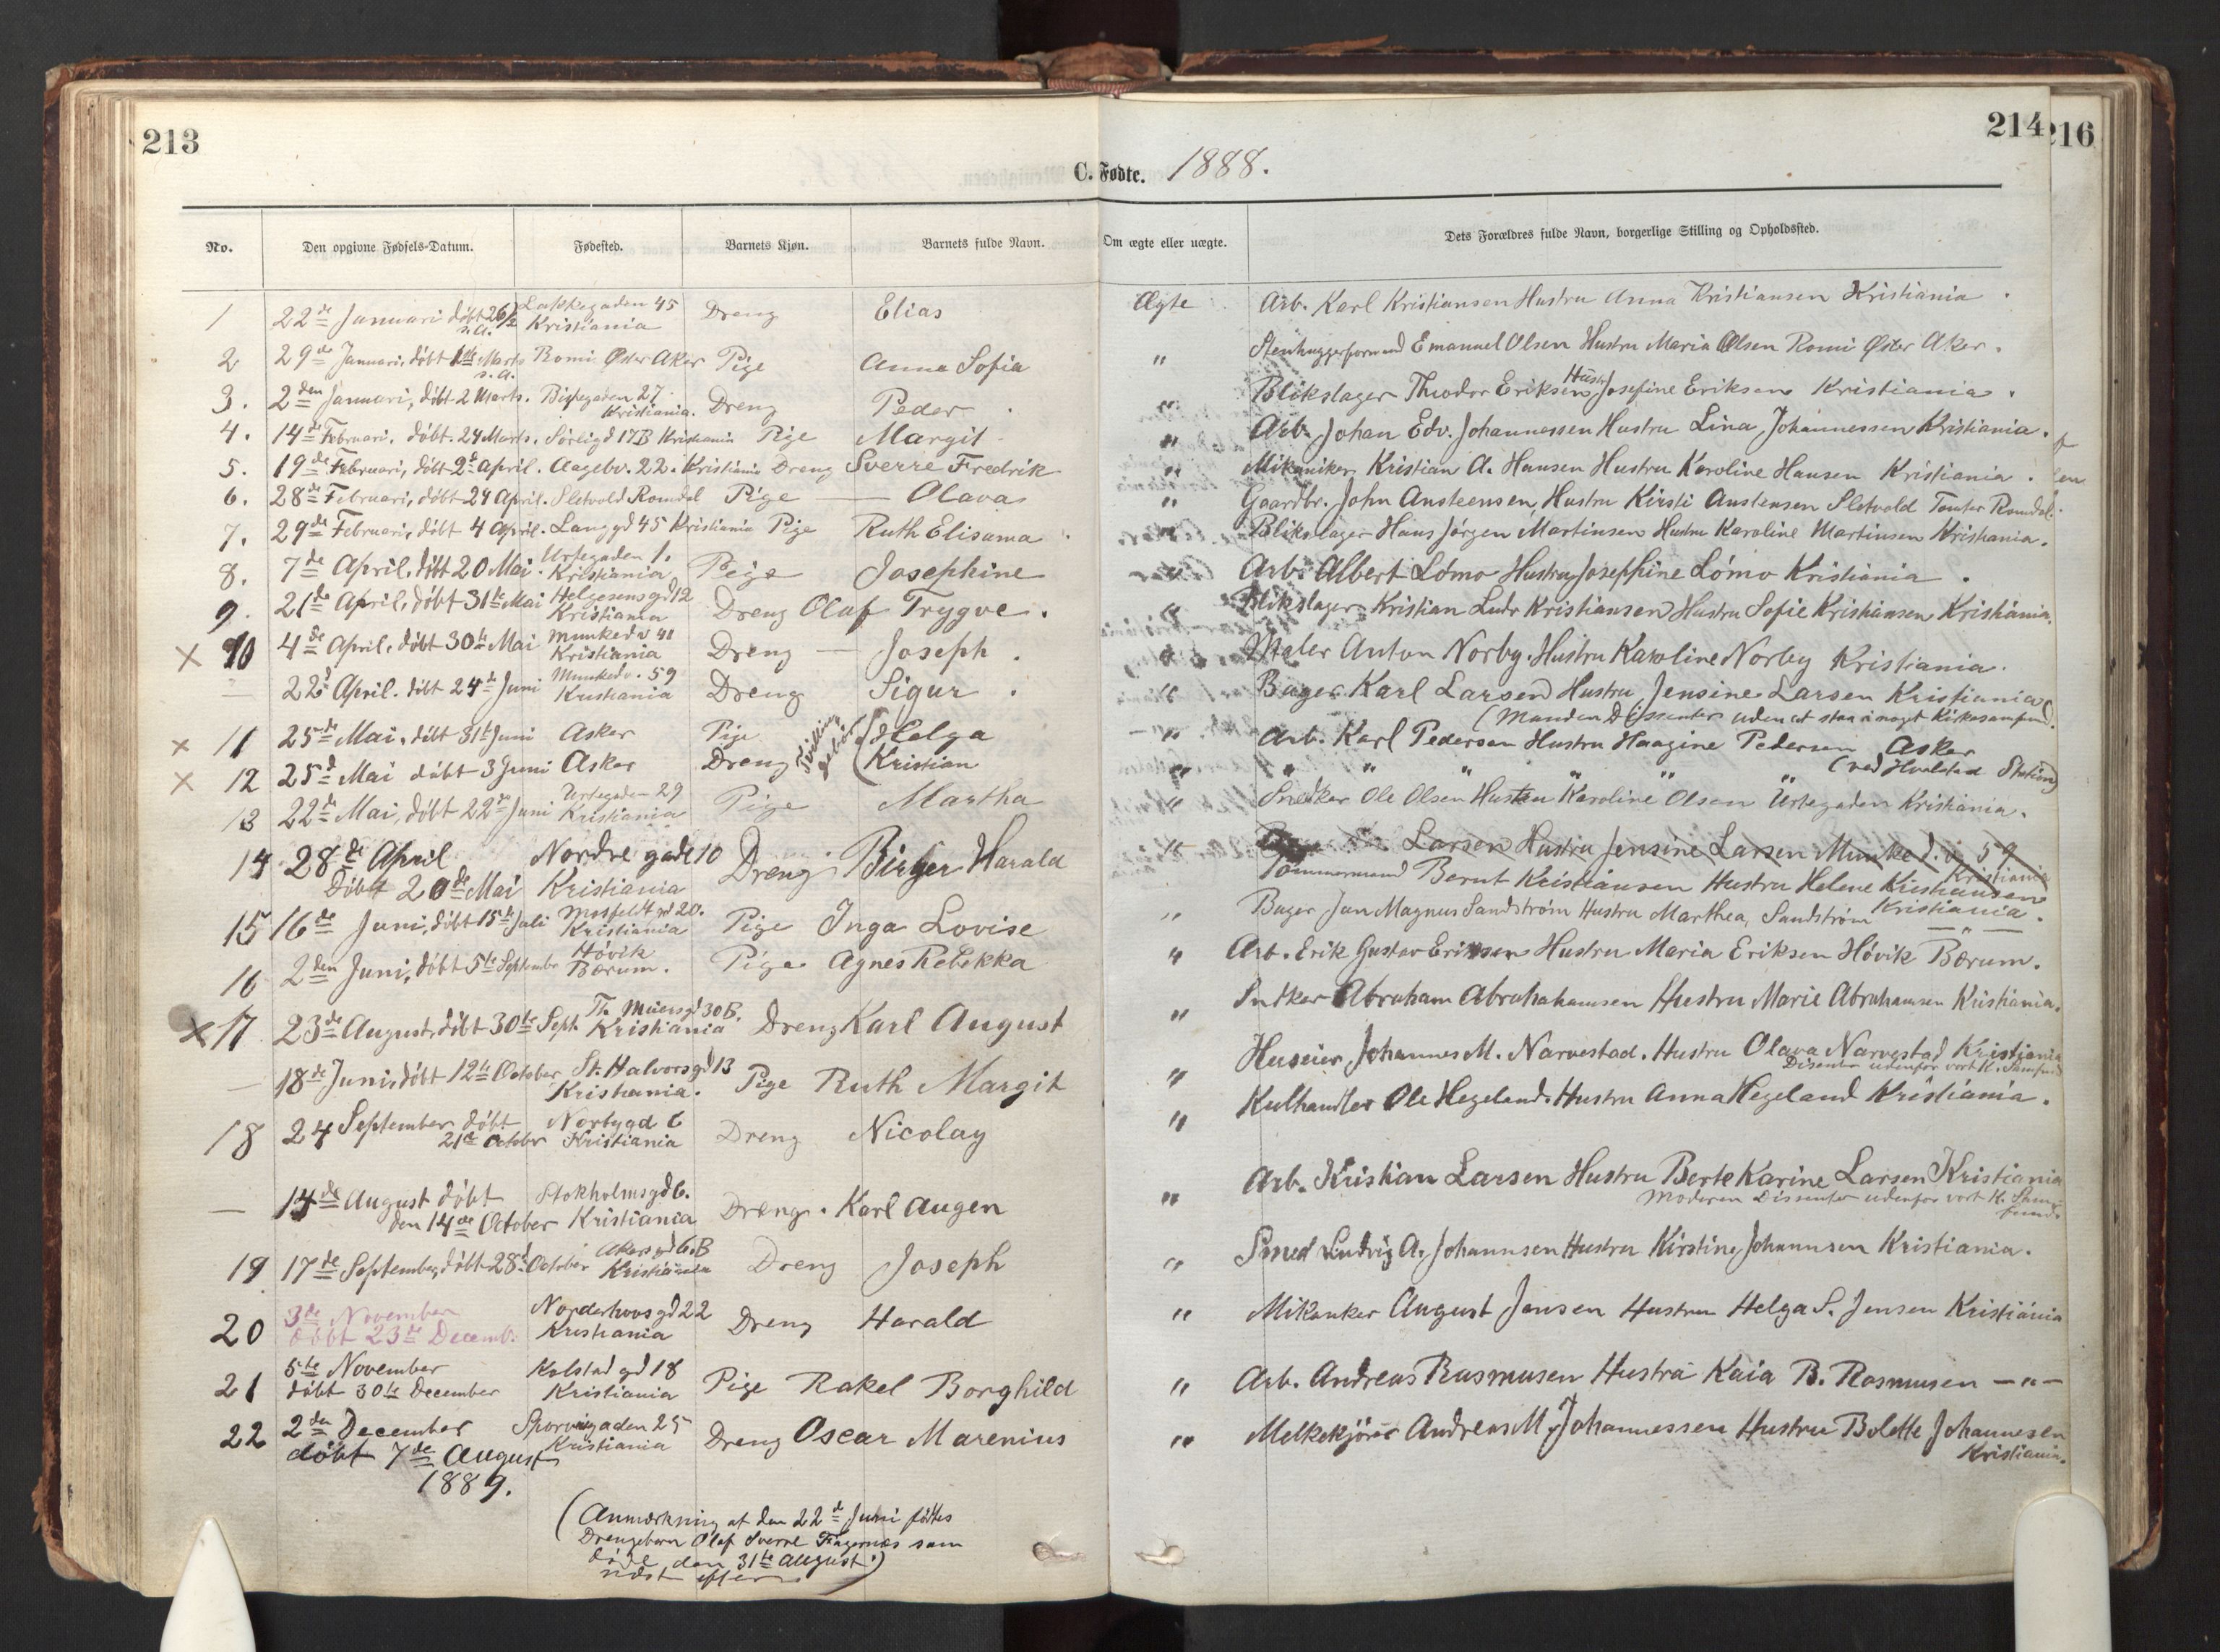 213
214
216
C. Fødte. 1888.
No. Den opgivne Fødsels-Datum. Fødested. Barnets Kjøn. Barnets fulde Navn. Om ægte eller uægte. Dets Forældres fulde Navn, borgerlige Stilling og Opholdssted.
1 22de Januari døbt 26/2 s.a. Lakkegaden 45 Kristiania Dreng Elias Ægte Arb. Karl Kristiansen Hustru Anna Kristiansen Kristiania
2 29de Januari, døbt 1ste Marts s.a. Romi Øster Aker Pige Anna Sofia " Stenhuggerformand Emanuel Olsen Hustru Maria Olsen Romi Øster Aker.
3. 2den Januari, døbt 2 Marts. Bispegaden 27 Kristiania. Dreng Peder " Blikslager Theodor Eriksen Hustr Josefine Eriksen Kristiania.
4. 14de Februari. døbt 24 Marts. Sørligd 17B Kristiania Pige Margit " Arb. Johan Edv. Johannessen Hustru Lina Johannessen Kristiania.
5. 19de Februari, døbt 2d April. Aagebr. 22. Kristiania Dreng Sverre Fredrik " Mikaniker Kristian A. Hansen Hustru Karoline Hansen Kristiania.
6. 28de Februari, døbt 24 April. Sletvold Romdal Pige — Olava " Gaardbr. John Austeensen, Hustru Kirsti Austensen Sletvold Tomter Romdal.
7. 29de Februari, døbt 4 April. Langgd 45 Kristiania Pige Ruth Elisama " Blikslager Hans Jørgen Martinsen Hustru Karoline Martinsen Kristiania.
8. 7de April, døbt 20 Mai. Urtegaden 1. Kristiania Pige Josephine " Arb. Albert Lømo Hustru Josephine Lømo Kristiania.
9. 21de April, døbt 31te Mai Helgesensgd 12 Kristiania Dreng Olaf Trygve. " Blikslager Kristian Ludv Kristiansen Hustru Sofie Kristiansen Kristiania.
x 10 4de April, døbt 30te Mai Munkedv 41 Kristiania Dreng — Joseph. " Maler Anton Norby. Hustru Karoline Norby Kristiania.
— 22d April. døbt 24de Juni Munkedv. 59 Kristiania Dreng Sigur. " Bager Karl Larsen Hustru Jensine Larsen Kristiania
(Manden Dissenter uden at staa i nogt Kirkesamfund.)
x 11 25de Mai, døbt 3die Juni Asker Pige Tvilling Helga " Arb. Karl Pedersen Hustru Haagine Pedersen Asker
(ved Hvalstad Station)
x 12 25d Mai døbt 3 Juni Asker Dreng Kristian " " " " " "
13 22de Mai, døbt 22de Juni Urtegaden 29 Kristiania Pige Martha " Snedker Ole Olsen Hustru Karoline Olsen Urtegaden Kristiania.
Larsen Hustru Jensine Larsen Munked. v 59 Kristiania
14 28de April døbt 20de Mai Nordre gade 10 Kristiania Dreng Birger Harald " Tømmermand Bernt Kristiansen Hustru Helene Kristiansen Kristiania.
15 16de Juni, døbt 15de Juli Mosfeldt gd 20. Kristiania Pige Inga Lovise " Bager Jan Magnus Sandstrøm Hustru Marthea, Sandstrøm — " —
16 2den Juni, døbt 5te Septembr Høvik Bærum. Pige Agnes Rebekka " Arb. Erik Gustav Eriksen Hustru Maria Eriksen Høvik Bærum.
x 17 23de August, døbt 30te Sept. Th. Meiersgd 30B. Kristiania Dreng Karl August " Sndker Abraham Abrahahamsen Hustru Marie Abrahamsen Kristiania.
— 18de Juni, døbt 12te October St. Halvorsgd 13 Kristiania. Pige Ruth Margit " Huseier Johannes M. Narvestad. Hustru Olava Narvestad Kristiania
Disenter udenfor vort K. Samfund
18 24 September døbt 21de October Norbygd 6 Kristiania Dreng Nicolay " Kulhandler Ole Hegeland. Hustru Anna Hegeland Kristiania.
— 14de August døbt den 14de October Stokholmsgd 6. Kristiania Dreng. Karl Augen " Arb. Kristian Larsen Hustru Berte Karine Larsen Kristiania
Moderen Dissenter udenfor vort K. Samfund.
19 17de September, døbt 28d October Akersgd 6.B Kristiania Dreng Joseph " Smed Ludvig A. Johannsen Hustru Kirstine Johannsen Kristiania.
20 3de November døbt 23de Decemb. Norderhovsgd 22 Kristiania Dreng Harald " Mikanker August Jensen Hustru Helga S. Jensen Kristiania
21 5te November døbt 30te December Kolstadgd 18 Kristiania Pige Rakel Borghild " Arb. Andreas Rasmusen Hustru Kaia B. Rasmusen — " —
22 2den December døbt 7de August 1889. Sporveisgaden 25 Kristiania Dreng Oscar Marenius " Melkekjører Andreas M. Johannessen Hustru Bolette Johannesen Kristiania.
(Anmærkning at den 22d Juni fødtes
Drengebarn Olaf Sverre Fagernæs som
døde den 31te August
næst efter)